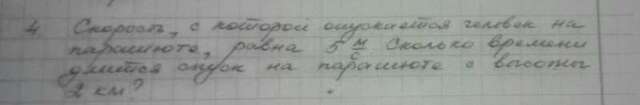 4 Скорость, с которой опускается человек на
парашюте, равна 5 м/с Сколько времени
длится спуск на парашюте с высоты
2 км?